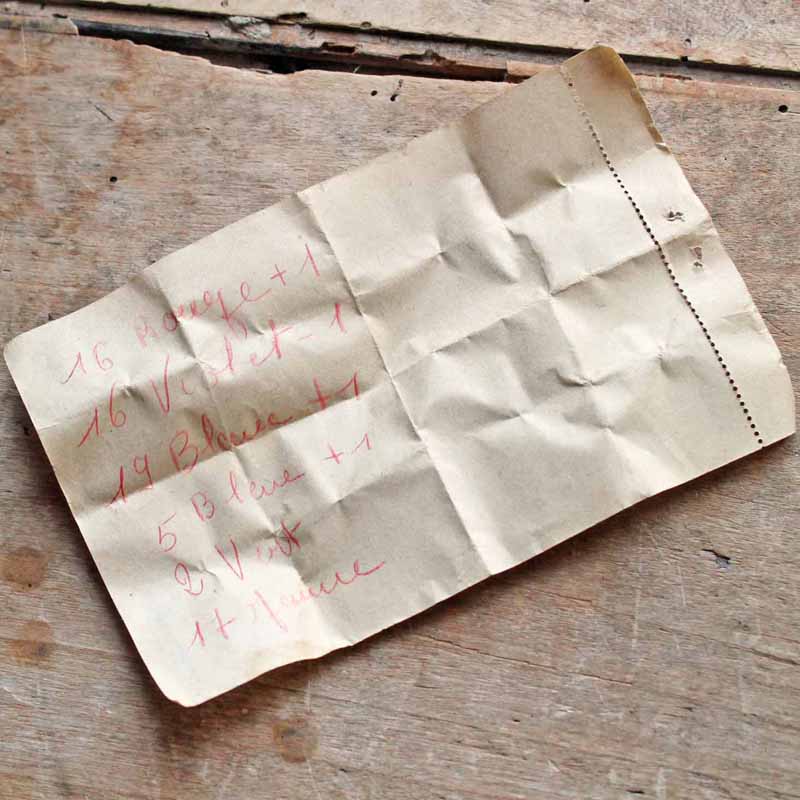 16 Rouge + 1
16 Violet - 1
19 Blanc + 1
5 Bleue + 1
2 Vert
17 Jaune